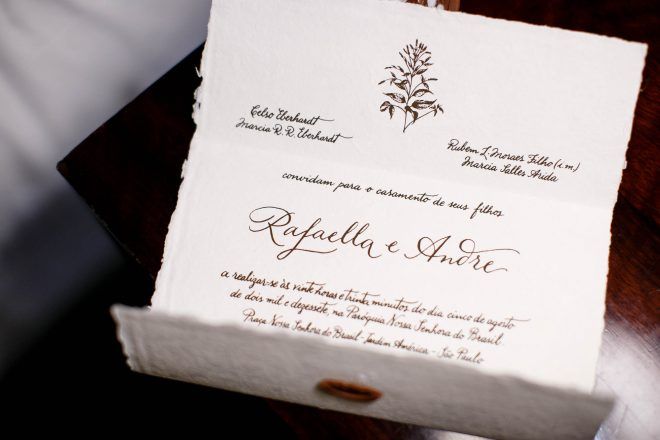 Celso Eberhardt
Marcia R. R. Eberhardt
Rubem L. Moraes Filho (i.m)
Marcia Salles Arida
convidam para o casamento de seus filhos
Rafaella e Andre
a realizar-se às vinte horas e trinta minutos do dia cinco de agosto
de dois mil e dezessete, na Paróquia Nossa Senhora do Brasil
Praça Nossa Senhora do Brasil - Jardim América - São Paulo